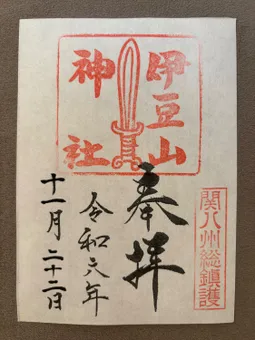 伊豆山
神社
奉拝
令和六年
十一月二十二日
関八州総鎮護